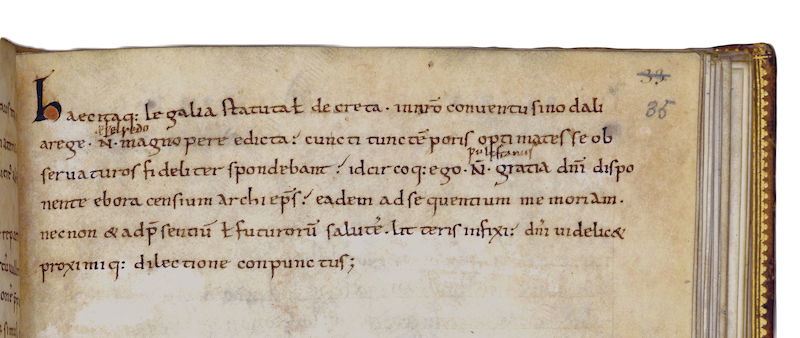 33
35
haec itaq: legalia statuta ł decreta · in nr̄o conventu sinodali
æþelredo
a rege · N̄ · magnopere edicta; cuncti tunc tēporis optimates se ob
pulfstanus
servaturos fideliter spondebant; idcircoq: ego · N̄ · gratia dn̄i dispo
nente eboracensium archiep̄s; eadem ad sequentium memoriam ·
necnon & ad p̄sentiū ł futurorū salutē · litteris infixi; dn̄i videlic&
proximiq: dilectione conpunctus;